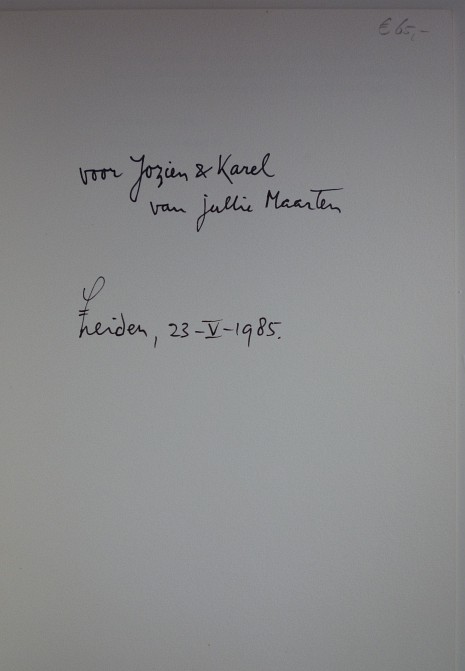 € 65,-
voor Jozien & Karel
van jullie Maarten
Leiden, 23-V-1985.